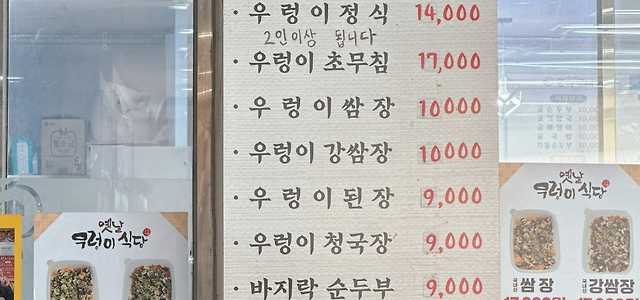 · 우렁이정식 14,000
2인이상 됩니다
· 우렁이 초무침 17,000
· 우렁이쌈장 10000
· 우렁이 강쌈장 10,000
· 우렁이된장 9,000
· 우렁이청국장 9,000
· 바지락 순두부 9,000
옛날
우렁이 식당
옛날
우렁이 식당
국내산 쌈장
국내산 강쌈장